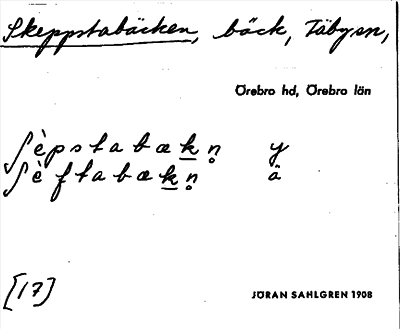 Skeppstabäcken, bäck, Täbysn,
Örebro hd, Örebro län
ʃèpstabæk̲n̥ y
ʃèftabæk̲n̥ ä
[17]
JÖRAN SAHLGREN 1908